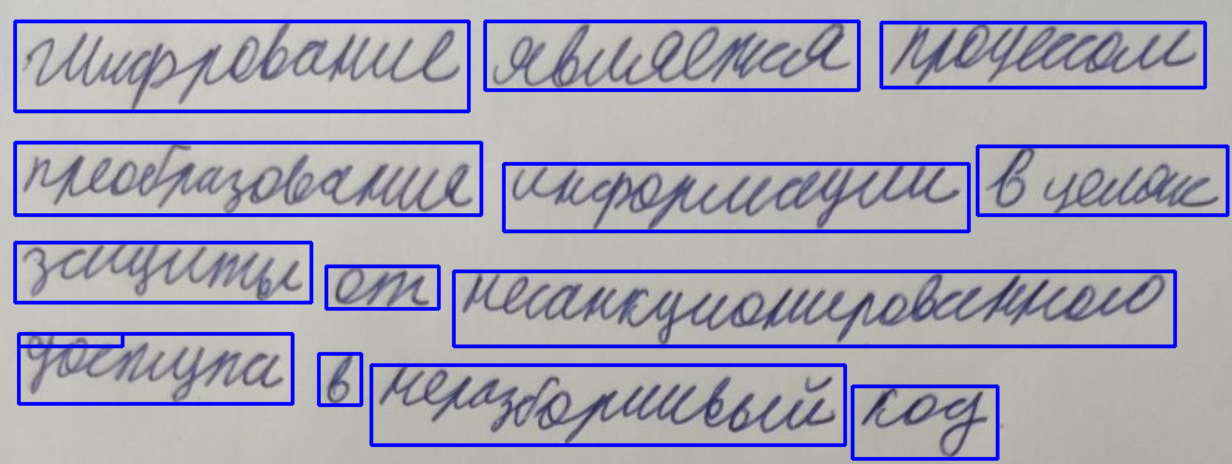 Шифрование является процессом
преобразования информации в целях
защиты от несанкционированного
доступа в неразборчивый код